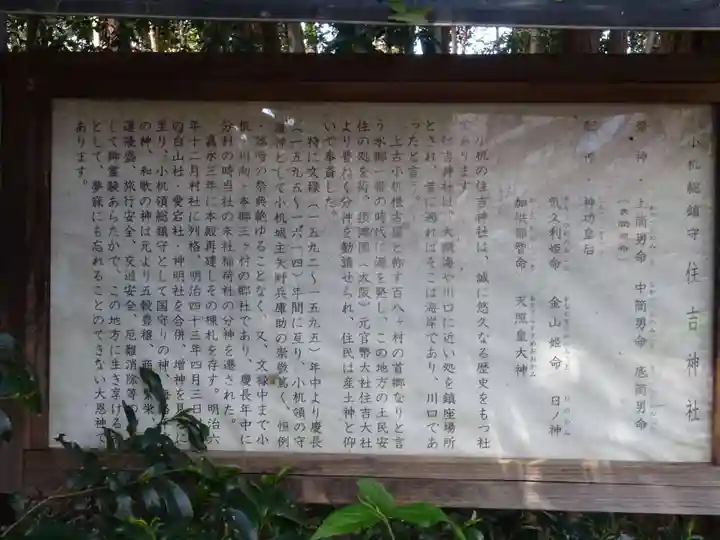 小机総鎮守 住吉神社
祭神・上筒男命 中筒男命 底筒男命
気久利姫命 金山姫命 日ノ神
配神・神功皇后
加供部智命 天照皇大神
小机の住吉神社は、誠に悠久なる歴史をもつ社
であります。
住吉神社は、大概海や川口に近い処を鎮座場所
とされ、昔に遡ればそこは海岸であり、川口であ
ったと言う。
上古小机櫓古屋と称す百八ヶ村の首郷なりと言
う水郷一帯の時代に源を発し、この地方の土民安
住の処を術、摂津国(大阪)元官幣大社住吉大社
より畳な分件を勧請せられ、住民は産土神と仰
いで奉斎した。
特に文禄(一五九二〜一五九五)年中より慶長
(一五九五〜一六一四)年間に亙り、小机領の守
護神として小机城主矢野兵庫助の崇敬篤く、恒例
・臨時の祭典絶ゆることなく、又、文禄中まで小
机・川向・本郷三ヶ村の郷社であり、慶長年中に
分村の時当社の末社稲荷社の分神を遷された。
嘉永三年に本殿再建しその棟札を存す。明治六
年十二月村社に列格、明治四十三年四月三日
の白山社・愛宕社・神明社を合併、増神を見
至り、小机領総鎮守として国守りの神、
の神、和歌の神は元より五穀豊穣、商 繁栄、
運隆盛、旅行安全、交通安全、厄難消除等の
して御霊験あらたかで、この地方に生き享ける
として、夢寐にも忘れることのできない大恩神で
あります。